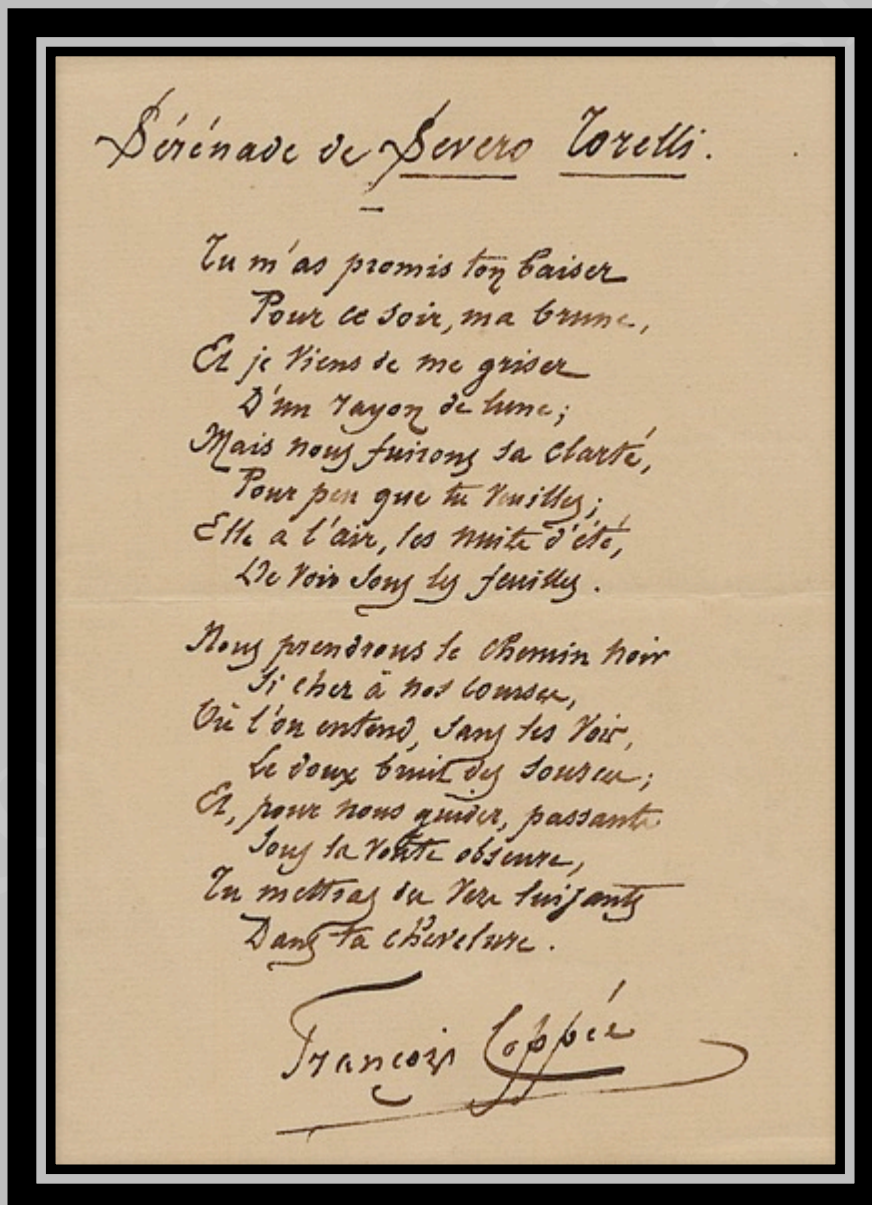 Sérénade de Severo Torelli.
Tu m'as promis ton baiser
Pour ce soir, ma brune,
Et je viens de me griser
D'un rayon de lune;
Mais nous fuirons sa clarté,
Pour peu que tu veuilles;
Elle a l'air, les nuits d'été,
De voir sous les feuilles.
Nous prendrons le chemin noir
Si cher à nos courses,
Où l'on entend, sans les voir,
Le doux bruit des sources;
Et, pour nous guider, passants
Sous la voûte obscure,
Tu mettras des vers luisants
Dans ta chevelure.
François Coppée